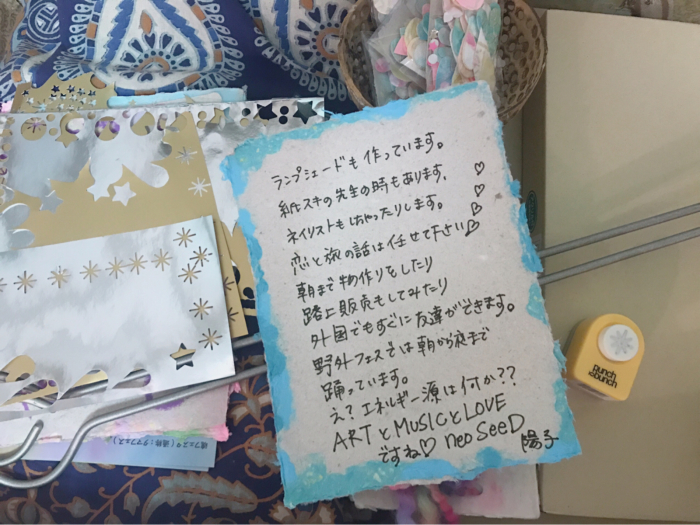 ランプシェードも作っています。
紙スキの先生の時もあります。
ネイリストもしちゃったりします。
恋と旅の話は任せて下さい♡
朝まで物作りをしたり
路上販売もしてみたり
外国でもすぐに友達ができます。
野外フェスでは朝から夜まで
踊っています。
え？エネルギー源は何か？？
ARTとMUSICとLOVE
ですね♡ neo SeeD
陽子
Punch
bunch